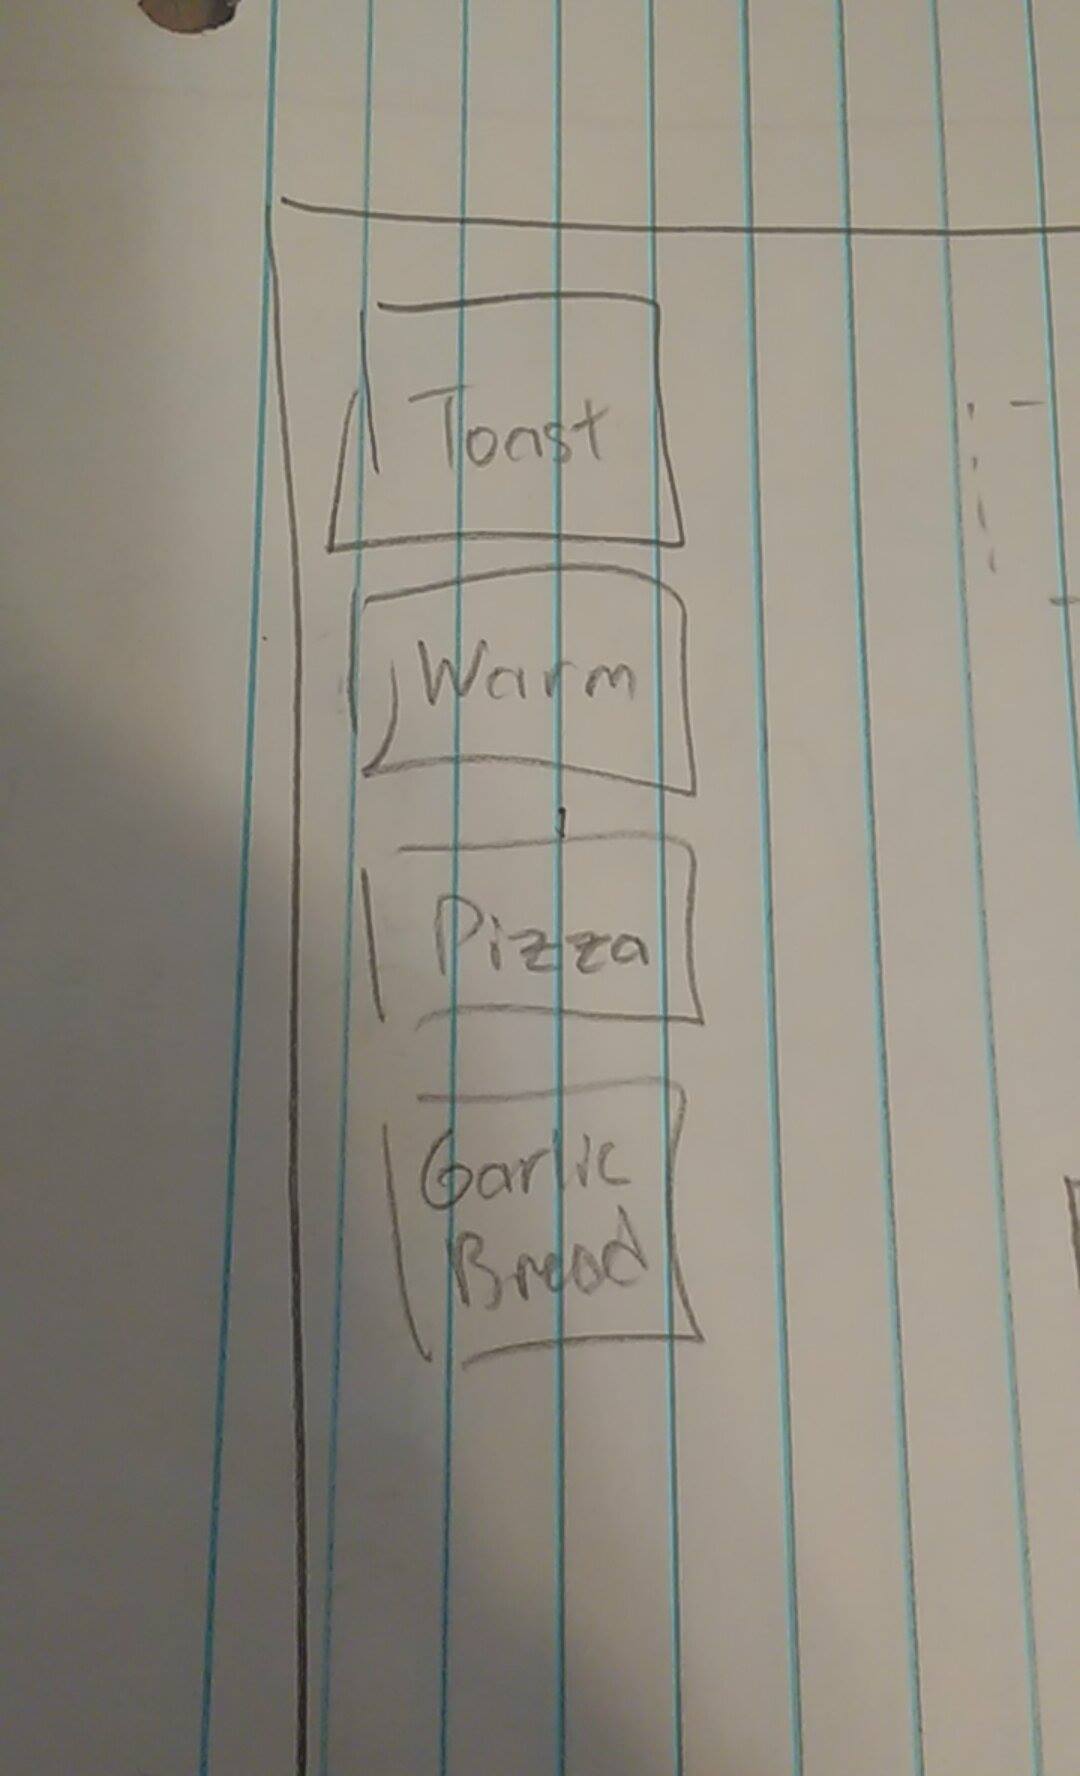 Toast
Warm
Pizza
Garlic
Bread